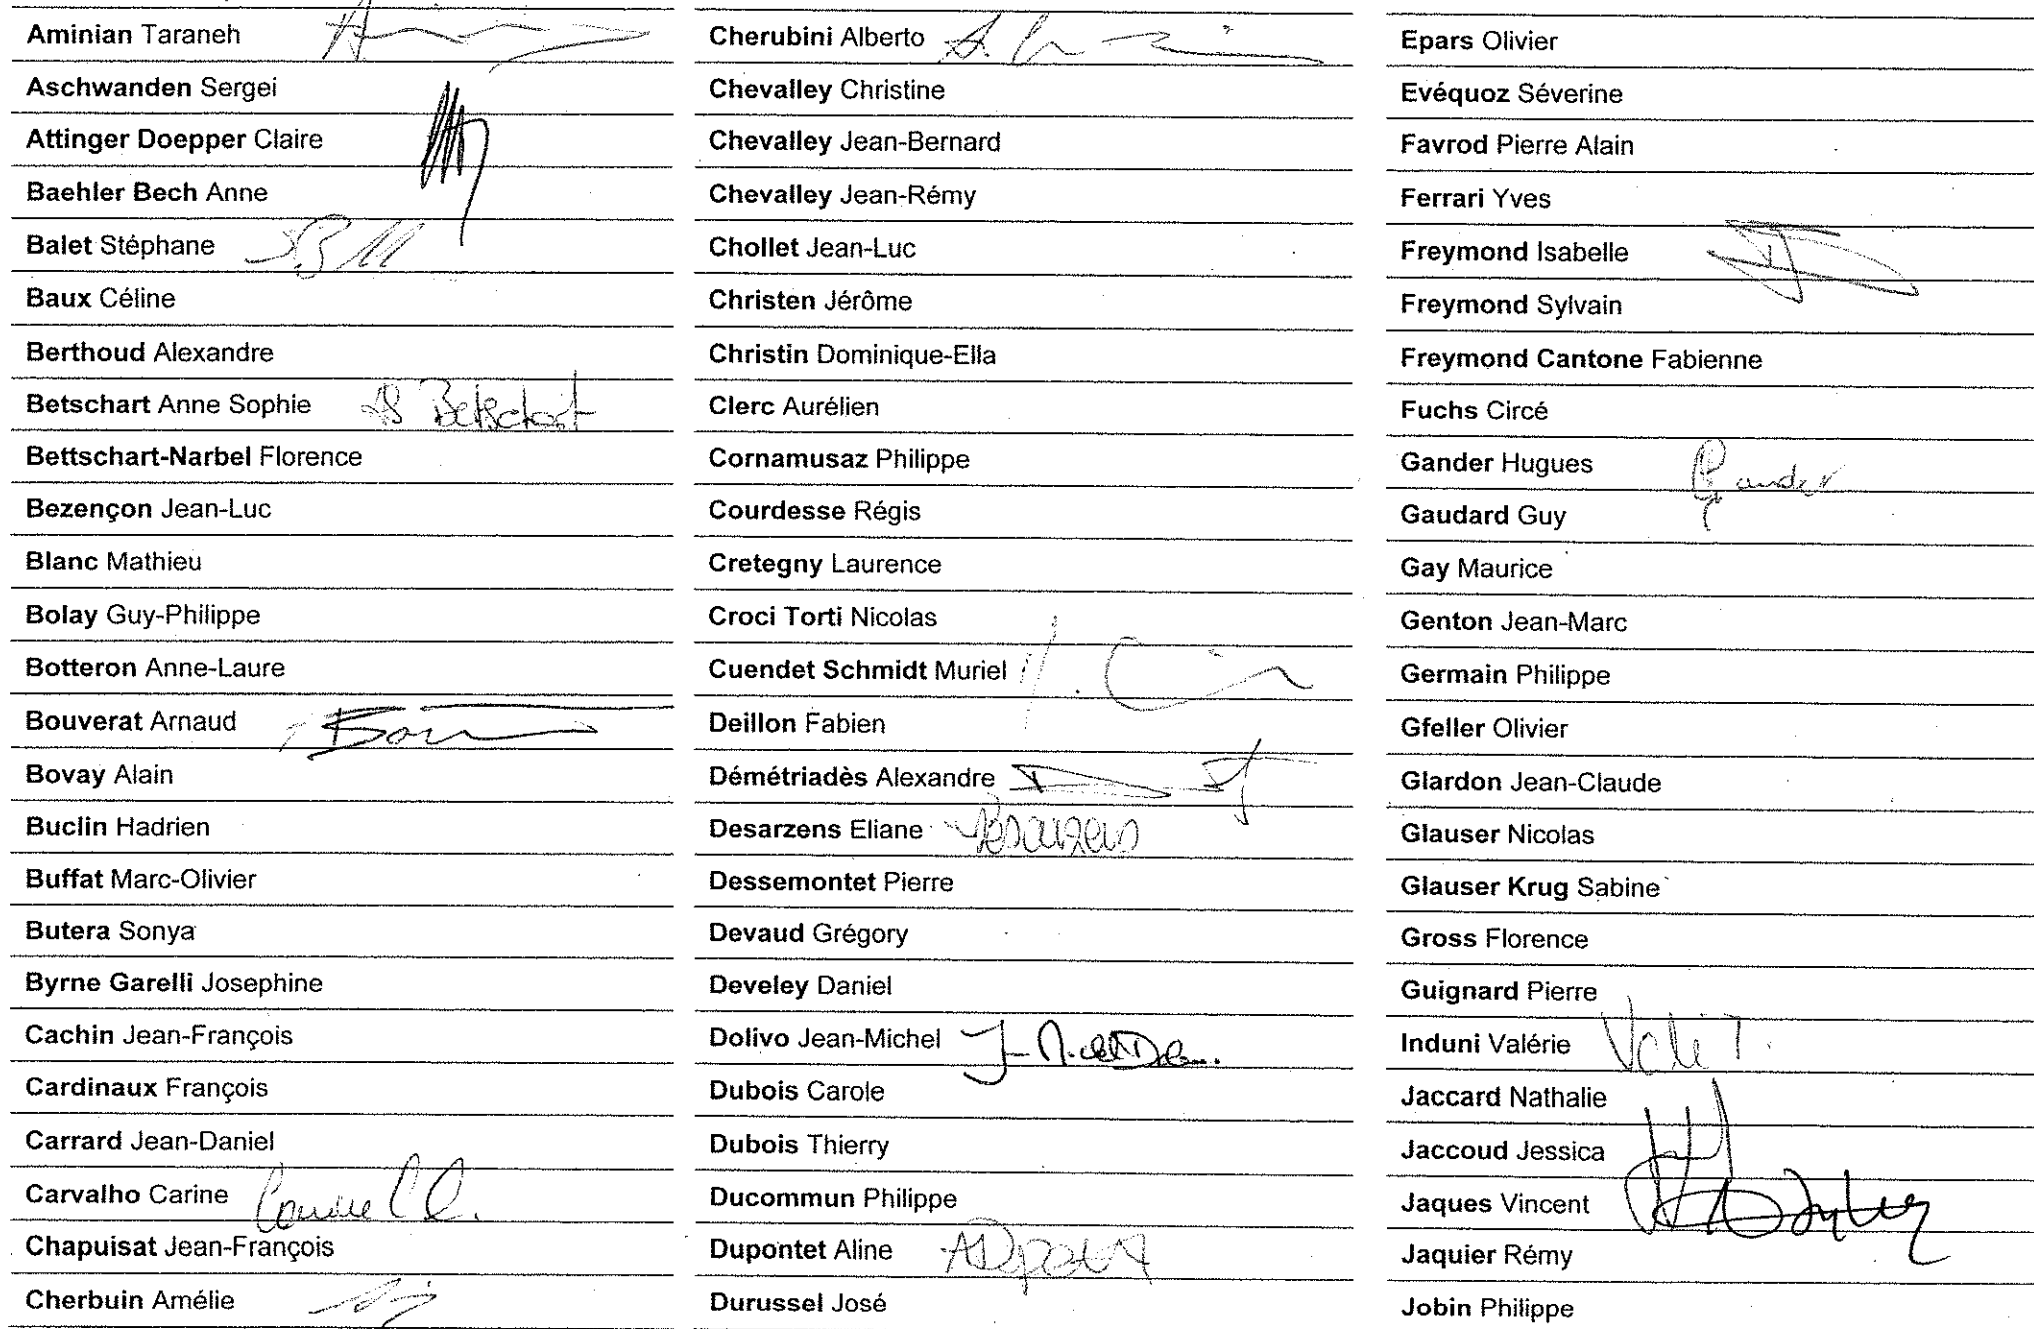 Aminian Taraneh
Aschwanden Sergei
Attinger Doepper Claire
Baehler Bech Anne
Balet Stéphane
Baux Céline
Berthoud Alexandre
Betschart Anne Sophie AS Betschart
Bettschart-Narbel Florence
Bezençon Jean-Luc
Blanc Mathieu
Bolay Guy-Philippe
Botteron Anne-Laure
Bouverat Arnaud
Bovay Alain
Buclin Hadrien
Buffat Marc-Olivier
Butera Sonya
Byrne Garelli Josephine
Cachin Jean-François
Cardinaux François
Carrard Jean-Daniel
Carvalho Carine
Chapuisat Jean-François
Cherbuin Amélie
Cherubini Alberto
Chevalley Christine
Chevalley Jean-Bernard
Chevalley Jean-Rémy
Chollet Jean-Luc
Christen Jérôme
Christin Dominique-Ella
Clerc Aurélien
Cornamusaz Philippe
Courdesse Régis
Cretegny Laurence
Croci Torti Nicolas
Cuendet Schmidt Muriel
Deillon Fabien
Démétriadès Alexandre
Desarzens Eliane Desarzens
Dessemontet Pierre
Devaud Grégory
Develey Daniel
Dolivo Jean-Michel
Dubois Carole
Dubois Thierry
Ducommun Philippe
Dupontet Aline
Durussel José
Epars Olivier
Evéquoz Séverine
Favrod Pierre Alain
Ferrari Yves
Freymond Isabelle
Freymond Sylvain
Freymond Cantone Fabienne
Fuchs Circé
Gander Hugues Gander
Gaudard Guy
Gay Maurice
Genton Jean-Marc
Germain Philippe
Gfeller Olivier
Glardon Jean-Claude
Glauser Nicolas
Glauser Krug Sabine
Gross Florence
Guignard Pierre
Induni Valérie
Jaccard Nathalie
Jaccoud Jessica
Jaques Vincent
Jaquier Rémy
Jobin Philippe